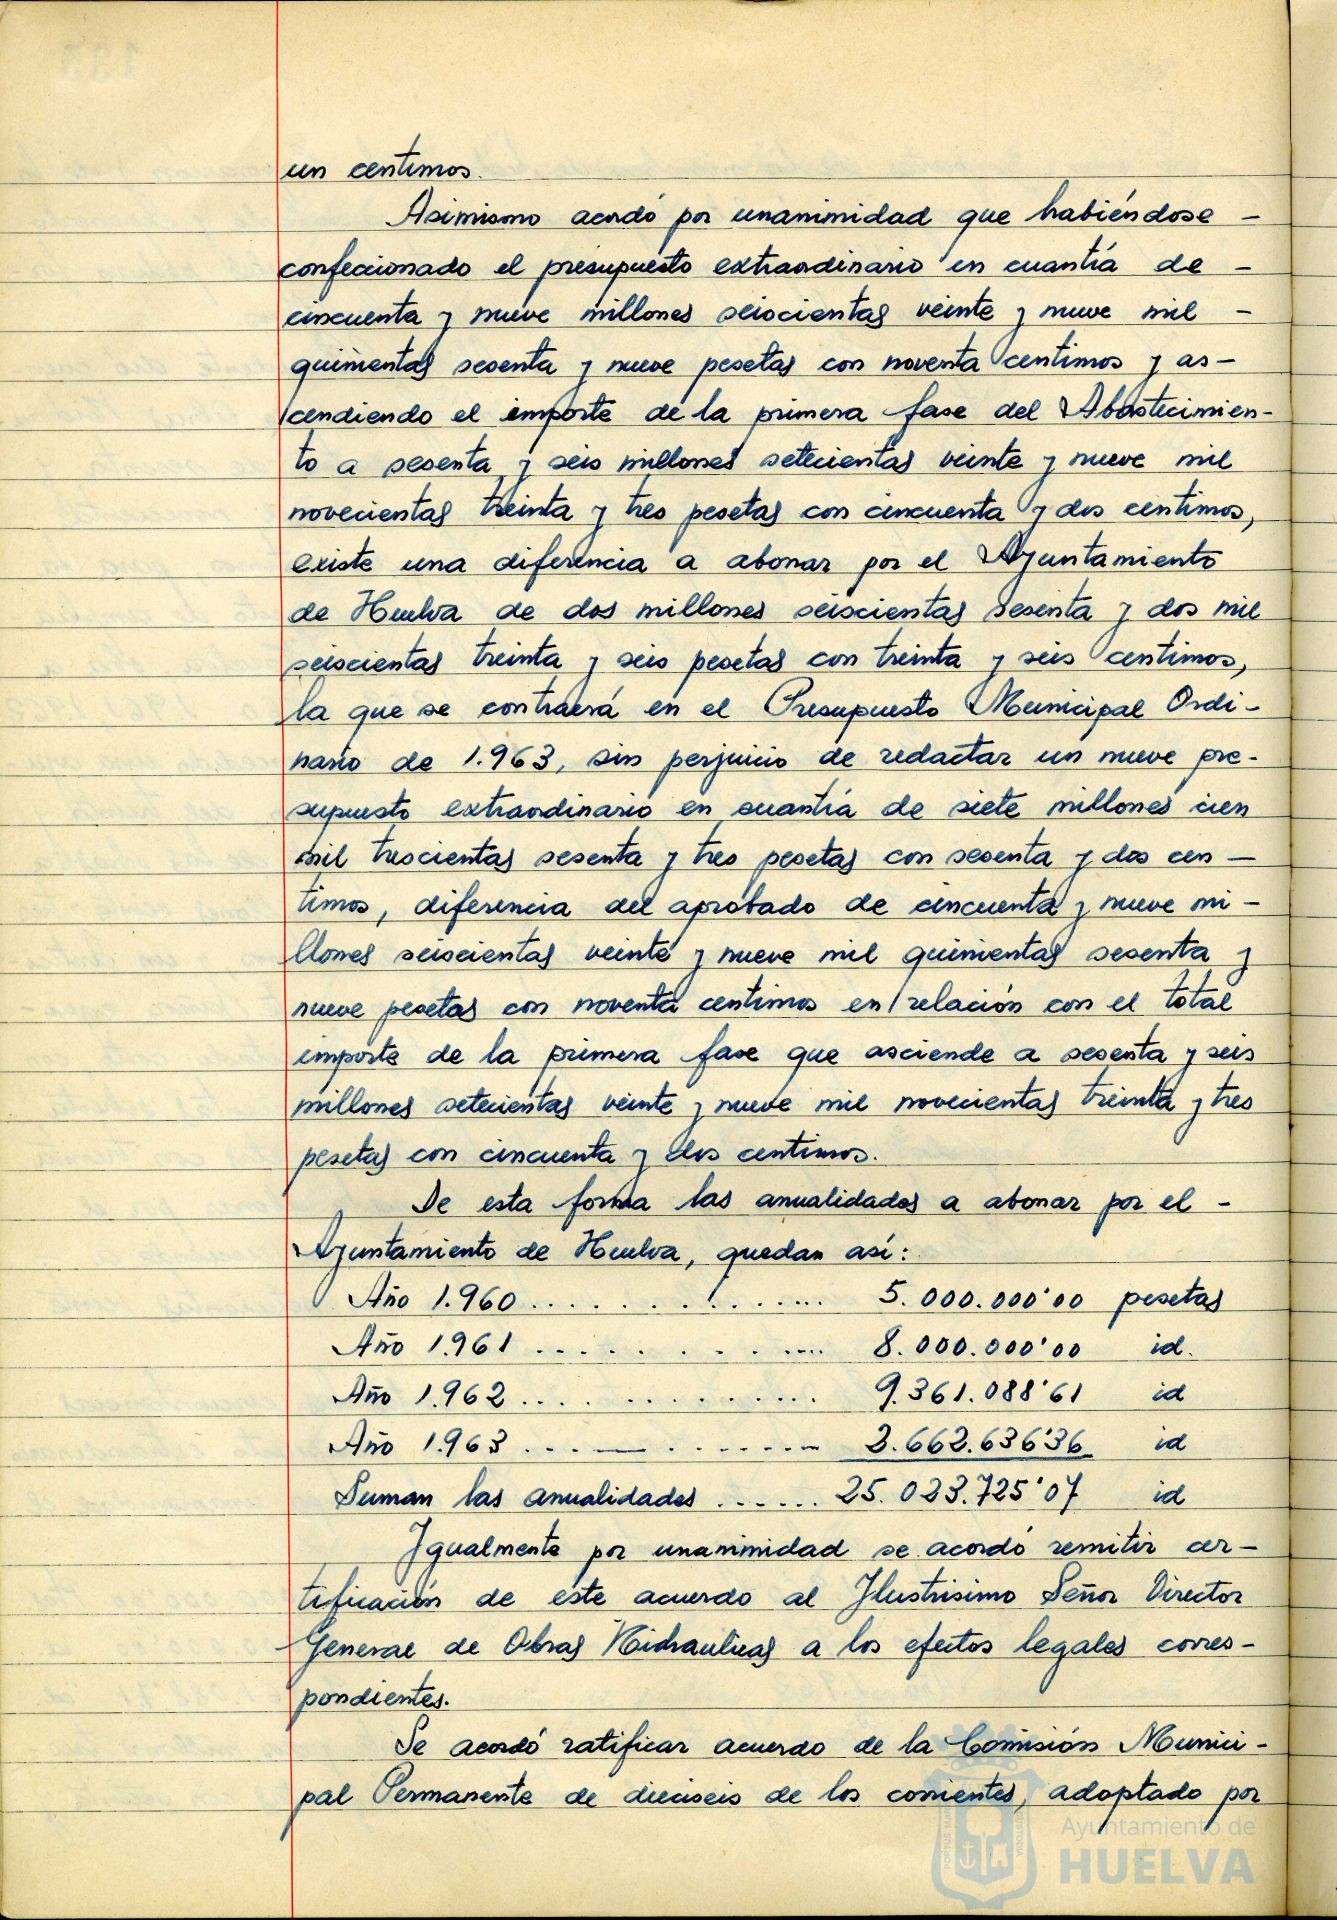 un centimos.
Asimismo acordó por unanimidad que habiéndose -
confeccionado el presupuesto extraordinario en cuantía de -
cincuenta y nueve millones seiscientas veinte y nueve mil -
quinientas sesenta y nueve pesetas con noventa centimos y as-
cendiendo el importe de la primera fase del Abastecimien-
to a sesenta y seis millones setecientas veinte y nueve mil
novecientas treinta y tres pesetas con cincuenta y dos centimos,
existe una diferencia a abonar por el Ayuntamiento
de Huelva de dos millones seiscientas sesenta y dos mil
seiscientas treinta y seis pesetas con treinta y seis centimos,
la que se contraerá en el Presupuesto Municipal Ordi-
nario de 1.963, sin perjuicio de redactar un nueve pre-
supuesto extraordinario en cuantía de siete millones cien
mil trescientas sesenta y tres pesetas con sesenta y dos cen-
timos, diferencia del aprobado de cincuenta y nueve mi-
llones seiscientas veinte y nueve mil quinientas sesenta y
nueve pesetas con noventa centimos en relación con el total
importe de la primera fase que asciende a sesenta y seis
millones setecientas veinte y nueve mil novecientas treinta y tres
pesetas con cincuenta y dos centimos.
De esta forma las anualidades a abonar por el -
Ayuntamiento de Huelva, quedan así:
Año 1.960 .............. 5.000.000'00 pesetas
Año 1.961 .............. 8.000.000'00 id.
Año 1.962 .............. 9.361.088'61 id
Año 1.963 .............. 2.662.636'36 id
Suman las anualidades ...... 25.023.725'07 id
Igualmente por unanimidad se acordó remitir cer-
tificación de este acuerdo al Ilustrisimo Señor Director
General de Obras Hidraulicas a los efectos legales corres-
pondientes.
Se acordó ratificar acuerdo de la Comisión Munici-
pal Permanente de dieciseis de los corrientes, adoptado por
Ayuntamiento de
HUELVA